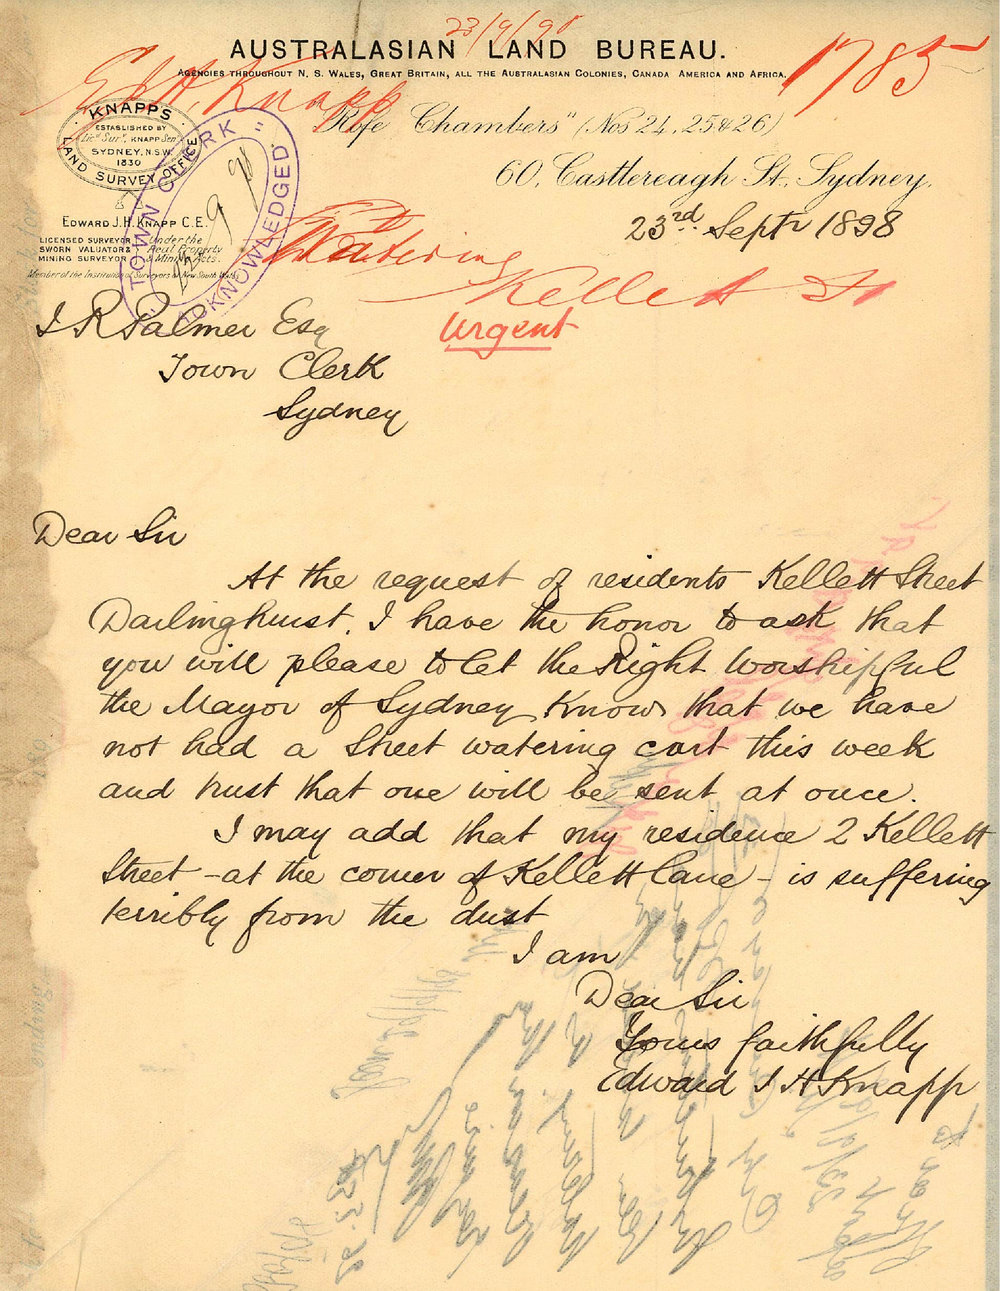 23/9/98
AUSTRALASIAN LAND BUREAU.
AGENCIES THROUGHOUT N. S. WALES, GREAT BRITAIN, ALL THE AUSTRALASIAN COLONIES, CANADA AMERICA AND AFRICA.
E J H. Knapp
1785
KNAPP'S
ESTABLISHED BY
Licd Surr, KNAPP Senr
SYDNEY, N.S.W.
1830
LAND SURVEY OFFICE
"Rofe Chambers" (Nos 24, 25 & 26)
60, Casttereagh St. Sydney.
TOWN CLERK
ACKNOWLEDGED
EDWARD J.H. KNAPP C.E.
LICENSED SURVEYOR
SWORN VALUATOR &
MINING SURVEYOR
Under the
Real Property
& Mining Acts.
Member of the Institution of Surveyors of New South Wales
23rd Septr 1898
Watering
Kellett St
Urgent
J R Palmer Esq
Town Clerk
Sydney
Dear Sir
At the request of residents Kellett Street
Darlinghurst. I have the honor to ask that
you will please to let the Right Worshipful
the Mayor of Sydney know that we have
not had a Street watering cart this week
and trust that one will be sent at once.
I may add that my residence 2 Kellett
Street - at the corner of Kellett Lane - is suffering
terribly from the dust
I am
Dear Sir
Yours faithfully
Edward J H Knapp